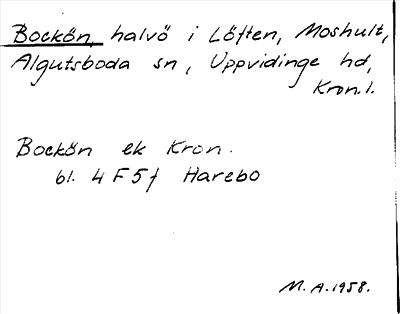 Bockön, halvö i Löften, Moshult,
Algutsboda sn, Uppvidinge hd,
Kron.l.
Bockön ek Kron.
bl. 4 F 5 f Harebo
M.A. 1958.